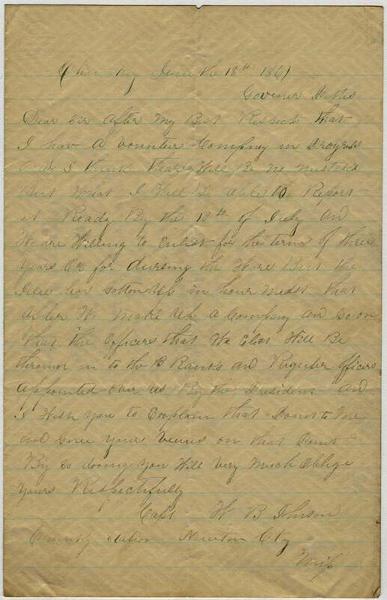 June the 18th 1861
Governor
Dear Sir After My Best Respects that
I have A volunteer Company in progress
and I think there Will Be no mistake
But What I Will Be Able to Report
it Ready By the 18th of July and
We are Willing to Enlist for the term of three
years Or for during the Ware But the
in hour midst that
We make up a Company and so on
that the Officers that We Elect Will Be
thrown in to the Ranks and Regular Officers
Appointed over us By the President and
I Wish you to Explain that point to Me
and give your views on that point
By so doing you Will very Much Oblige
yours Respectfully
Capt W B Jhnson
station Newton Cty
Miss